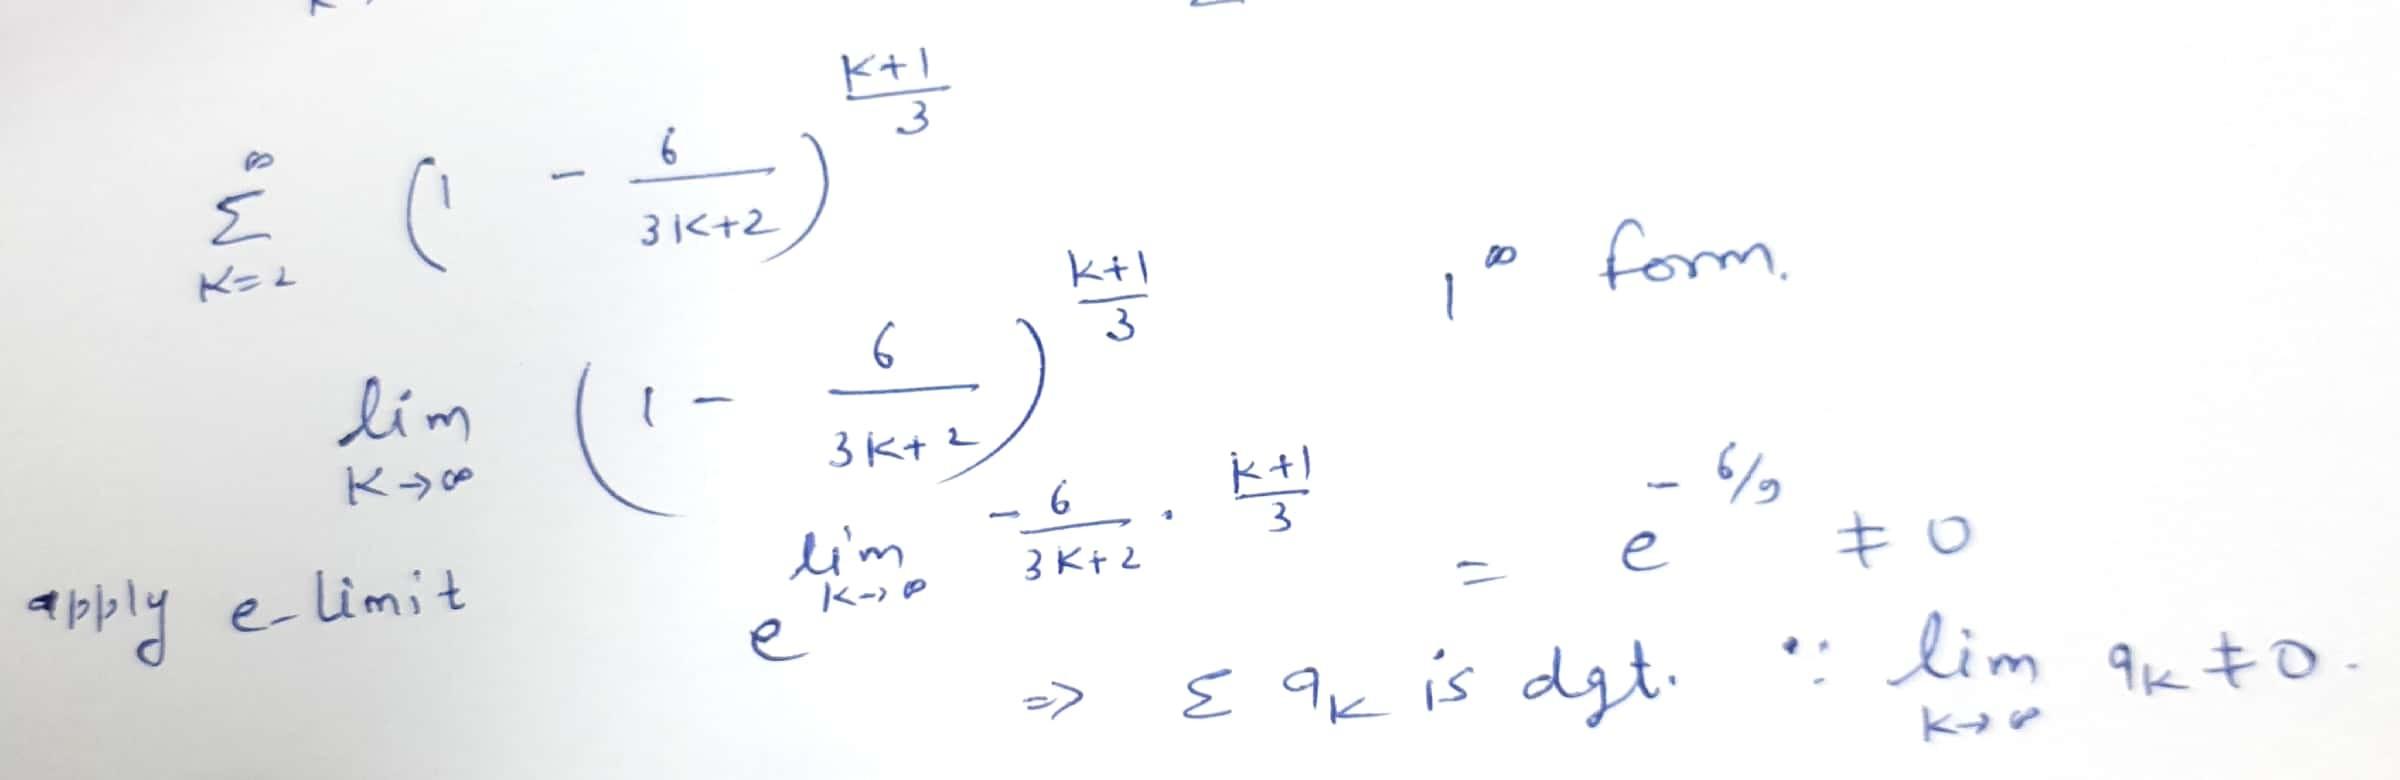 ∞ Σ K=2 (1 - 6/(3K+2))^((K+1)/3)
lim K→∞ (1 - 6/(3K+2))^((K+1)/3) 1^∞ form.
apply e-limit e^(lim K→∞ -6/(3K+2) · (K+1)/3) = e^(-6/9) ≠ 0
⇒ Σ ak is dgt. ∵ lim K→∞ ak ≠ 0.